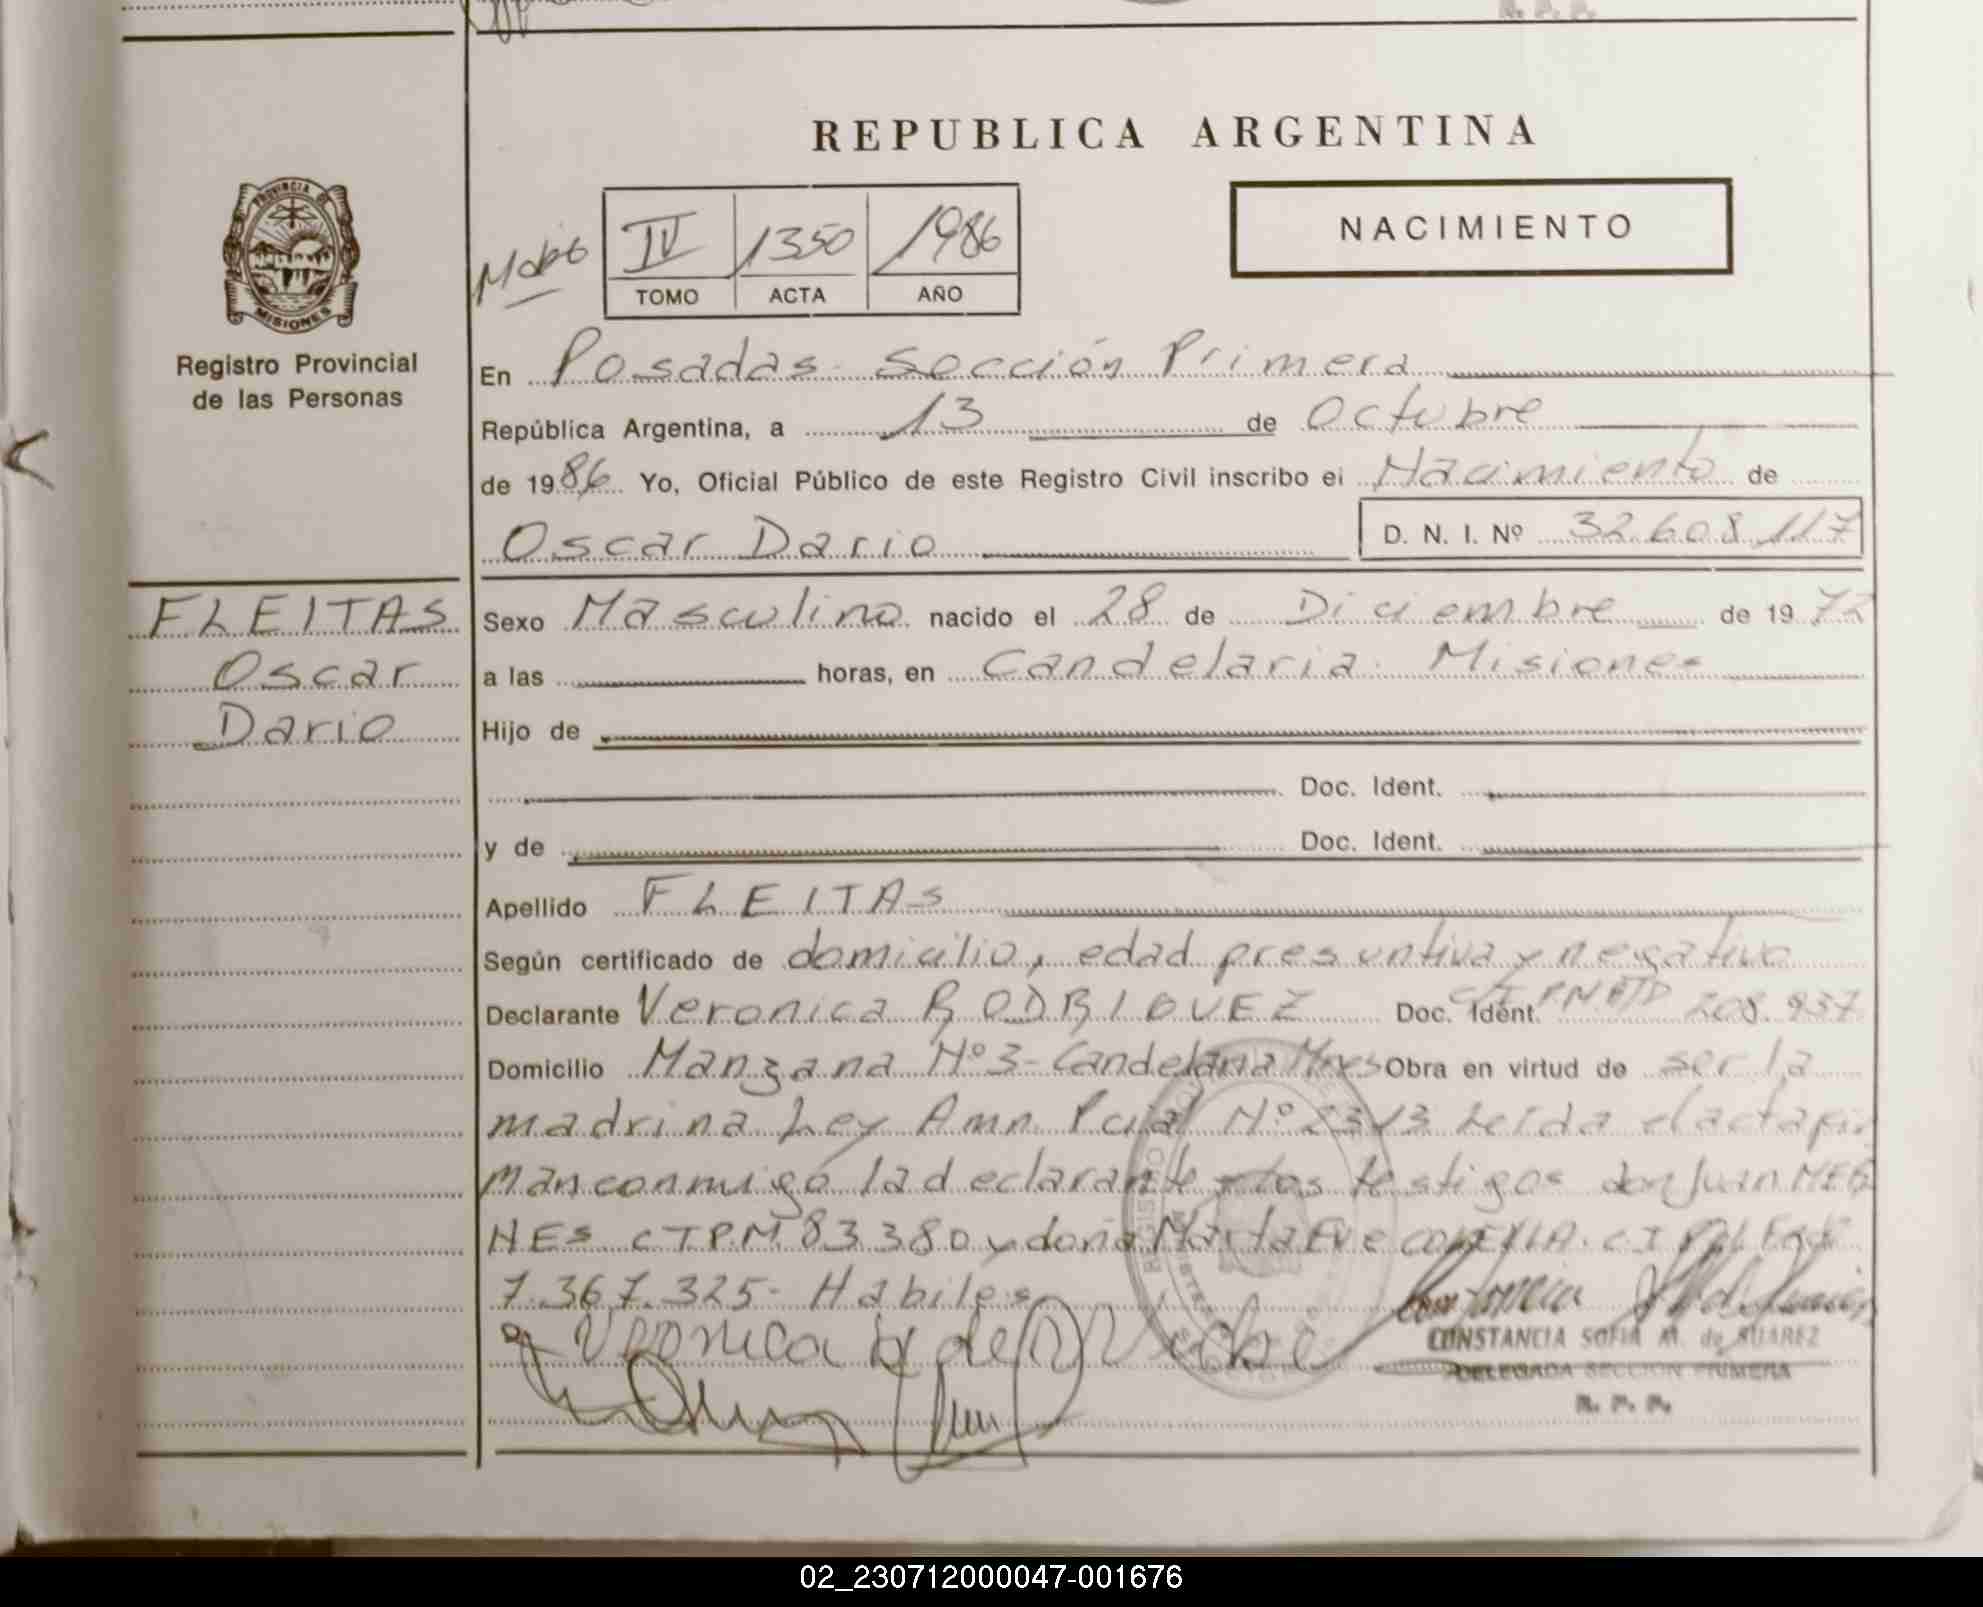 REPUBLICA ARGENTINA
NACIMIENTO
IV 1350 1986
TOMO ACTA AÑO
PROVINCIA DE
MISIONES
Registro Provincial
de las Personas
En Posadas Sección Primera
República Argentina, a 13 de Octubre
de 1986 Yo, Oficial Público de este Registro Civil inscribo el Nacimiento de
Oscar Dario D. N. I. Nº 32.608.117
FLEITAS
Oscar
Dario
Sexo Masculino nacido el 28 de Diciembre de 1972
a las horas, en Candelaria. Misiones
Hijo de
Doc. Ident.
y de Doc. Ident.
Apellido FLEITAS
Según certificado de domicilio, edad presuntiva y negativo
Declarante Veronica RODRIGUEZ Doc. Ident. 208.937
Domicilio Manzana Nº 3 - Candelaria Mnes Obra en virtud de ser la
madrina Ley Amn. Pcial Nº 2313 Leída el acta fir
man conmigo la declarante y los testigos don Juan
NES CIPM 83380 y doña Marta Eve C I Pol Fed
7.367.325- Habiles
Veronica de
CONSTANCIA SOFIA M. de SUAREZ
DELEGADA SECCION PRIMERA
R. P. P.
02_230712000047-001676